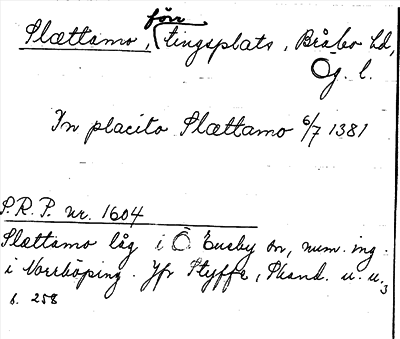 Slættamo, förr tingsplats, Bråbo hd,
Ög. l.
In placito Slættamo 6/7 1381
S.R.P. nr. 1604
Slættamo låg i Ö Eneby sn, num. ing.
i Norrköping. Jfr Styffe, Skand. u. u.3
s. 258